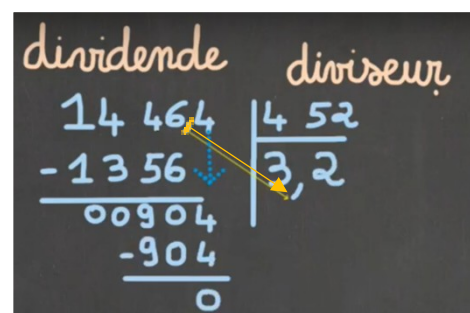 dividende diviseur
14 464 452
- 1 3 56 3,2
00904
-904
0